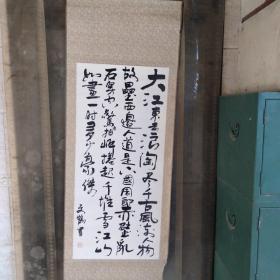 大江東去浪淘尽千古風流人物
故壘西邊人道是三國周郎赤壁亂
石穿空驚濤拍岸捲起千堆雪江山
如畫一時多少豪傑